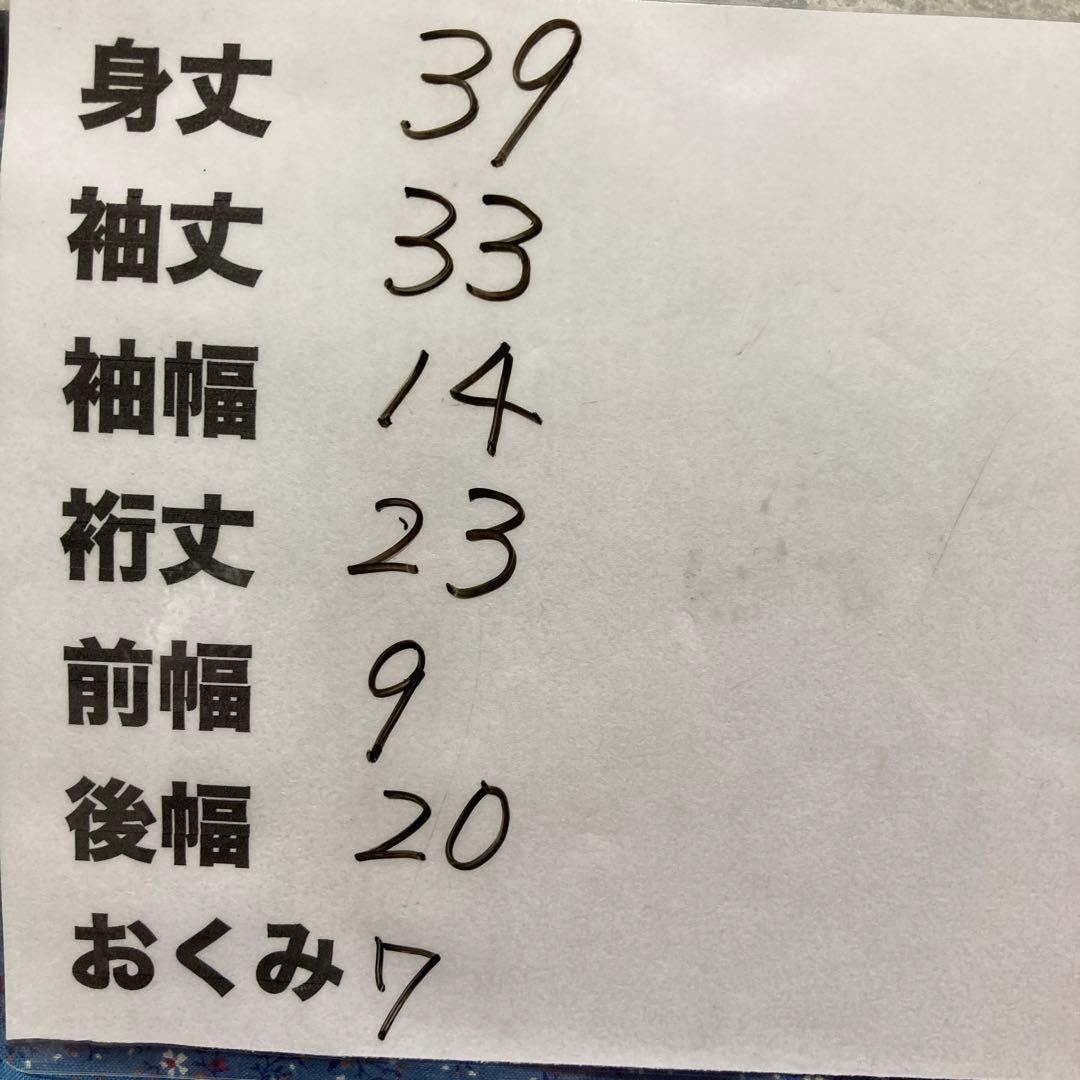 身丈 39
袖丈 33
袖幅 14
裄丈 23
前幅 9
後幅 20
おくみ 7